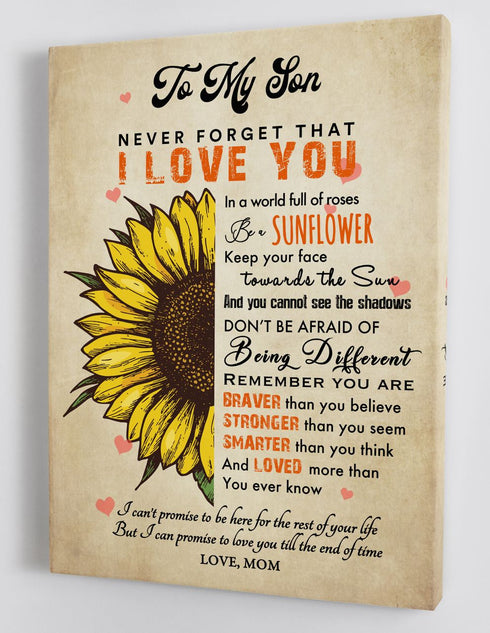 To My Son
NEVER FORGET THAT
I LOVE YOU
In a world full of roses
Be a SUNFLOWER
Keep your face
towards the Sun
And you cannot see the shadows
DON'T BE AFRAID OF
Being Different
REMEMBER YOU ARE
BRAVER than you believe
STRONGER than you seem
SMARTER than you think
And LOVED more than
You ever know
I can't promise to be here for the rest of your life
But I can promise to love you till the end of time
LOVE, MOM